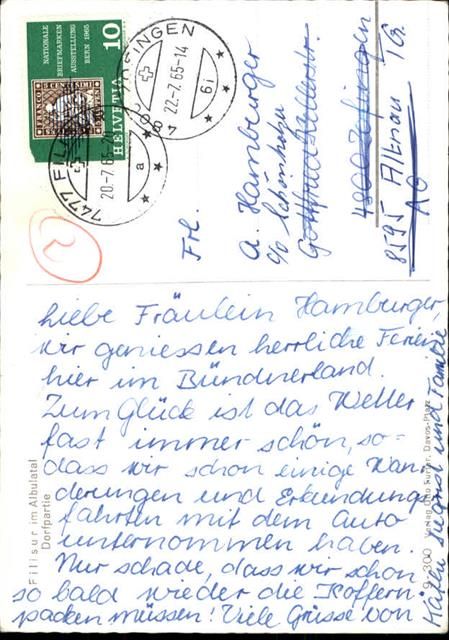 NATIONALE
BRIEFMARKEN
AUSSTELLUNG
BERN 1965
10
HELVETIA
4800 ZOFINGEN
22-7 65-14
6i
7477 FILISUR
20.-7 65-20
a
2
Frl.
A. Hamburger
c/o Schönholzer
Gottfried Kellerstr.
4800 Zofingen
8595 Altnau TG.
AG
Liebe Fräulein Hamburger,
wir geniessen herrliche Ferien
hier im Bündnerland.
Zum Glück ist das Wetter
fast immer schön, so=
dass wir schon einige Wan
derungen und Erkundungs
fahrten mit dem Auto
unternommen haben.
Nur schade, dass wir schon
so bald wieder die Koffern
packen müssen! Viele Grüsse von
Siegrist und Familie
Filisur im Albulatal
Dorfpartie
300 Verlag Otto Furter, Davos-Platz